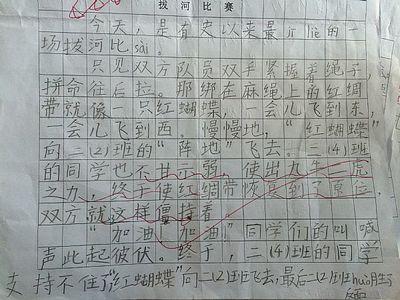 拔河比赛
今天，是有史以来最jī liè的一
场拔河比sài。
只见双方队员双手紧握着绳子，
拼命往后拉。那绑在麻绳上的红绸
带就像一只红蝴蝶，一会儿飞到东，
一会儿飞到西。慢慢地，“红蝴蝶”
向二(2)班的“阵地”飞去。二(4)班
的同学也不甘示弱，使出九牛二虎
之力，终于使红绸带恢复到了原位，
双方就这样僵持着
“加油！加油！”同学们的叫喊
声此起彼伏。终于，二(4)班的同学
支持不住了，“红蝴蝶”向二(2)班飞去，最后二(2)班huò胜了